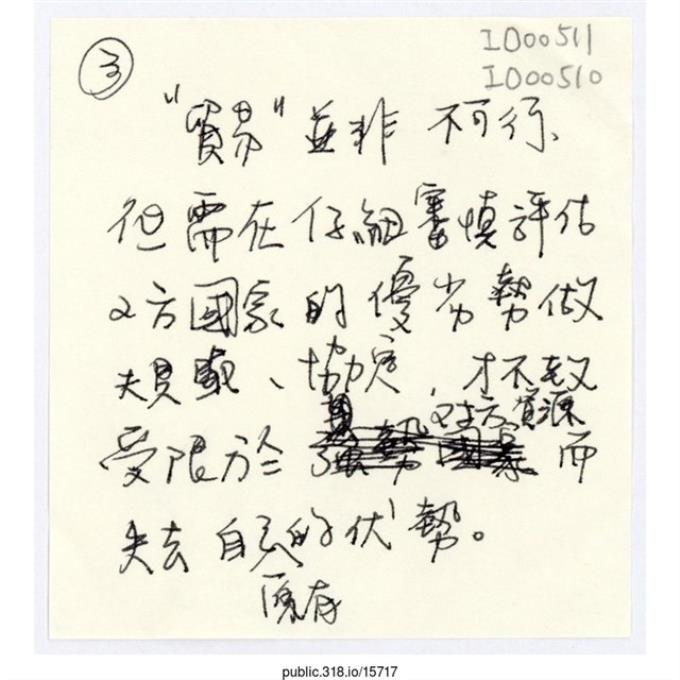 ③
I000511
I000510
"貿易"並非 不可行、
但需在仔細審慎評估
2方國家的優劣勢做
規範、協定,才不致
對方資源
受限於 強勢國家 而
失去自己的优勢。
原有